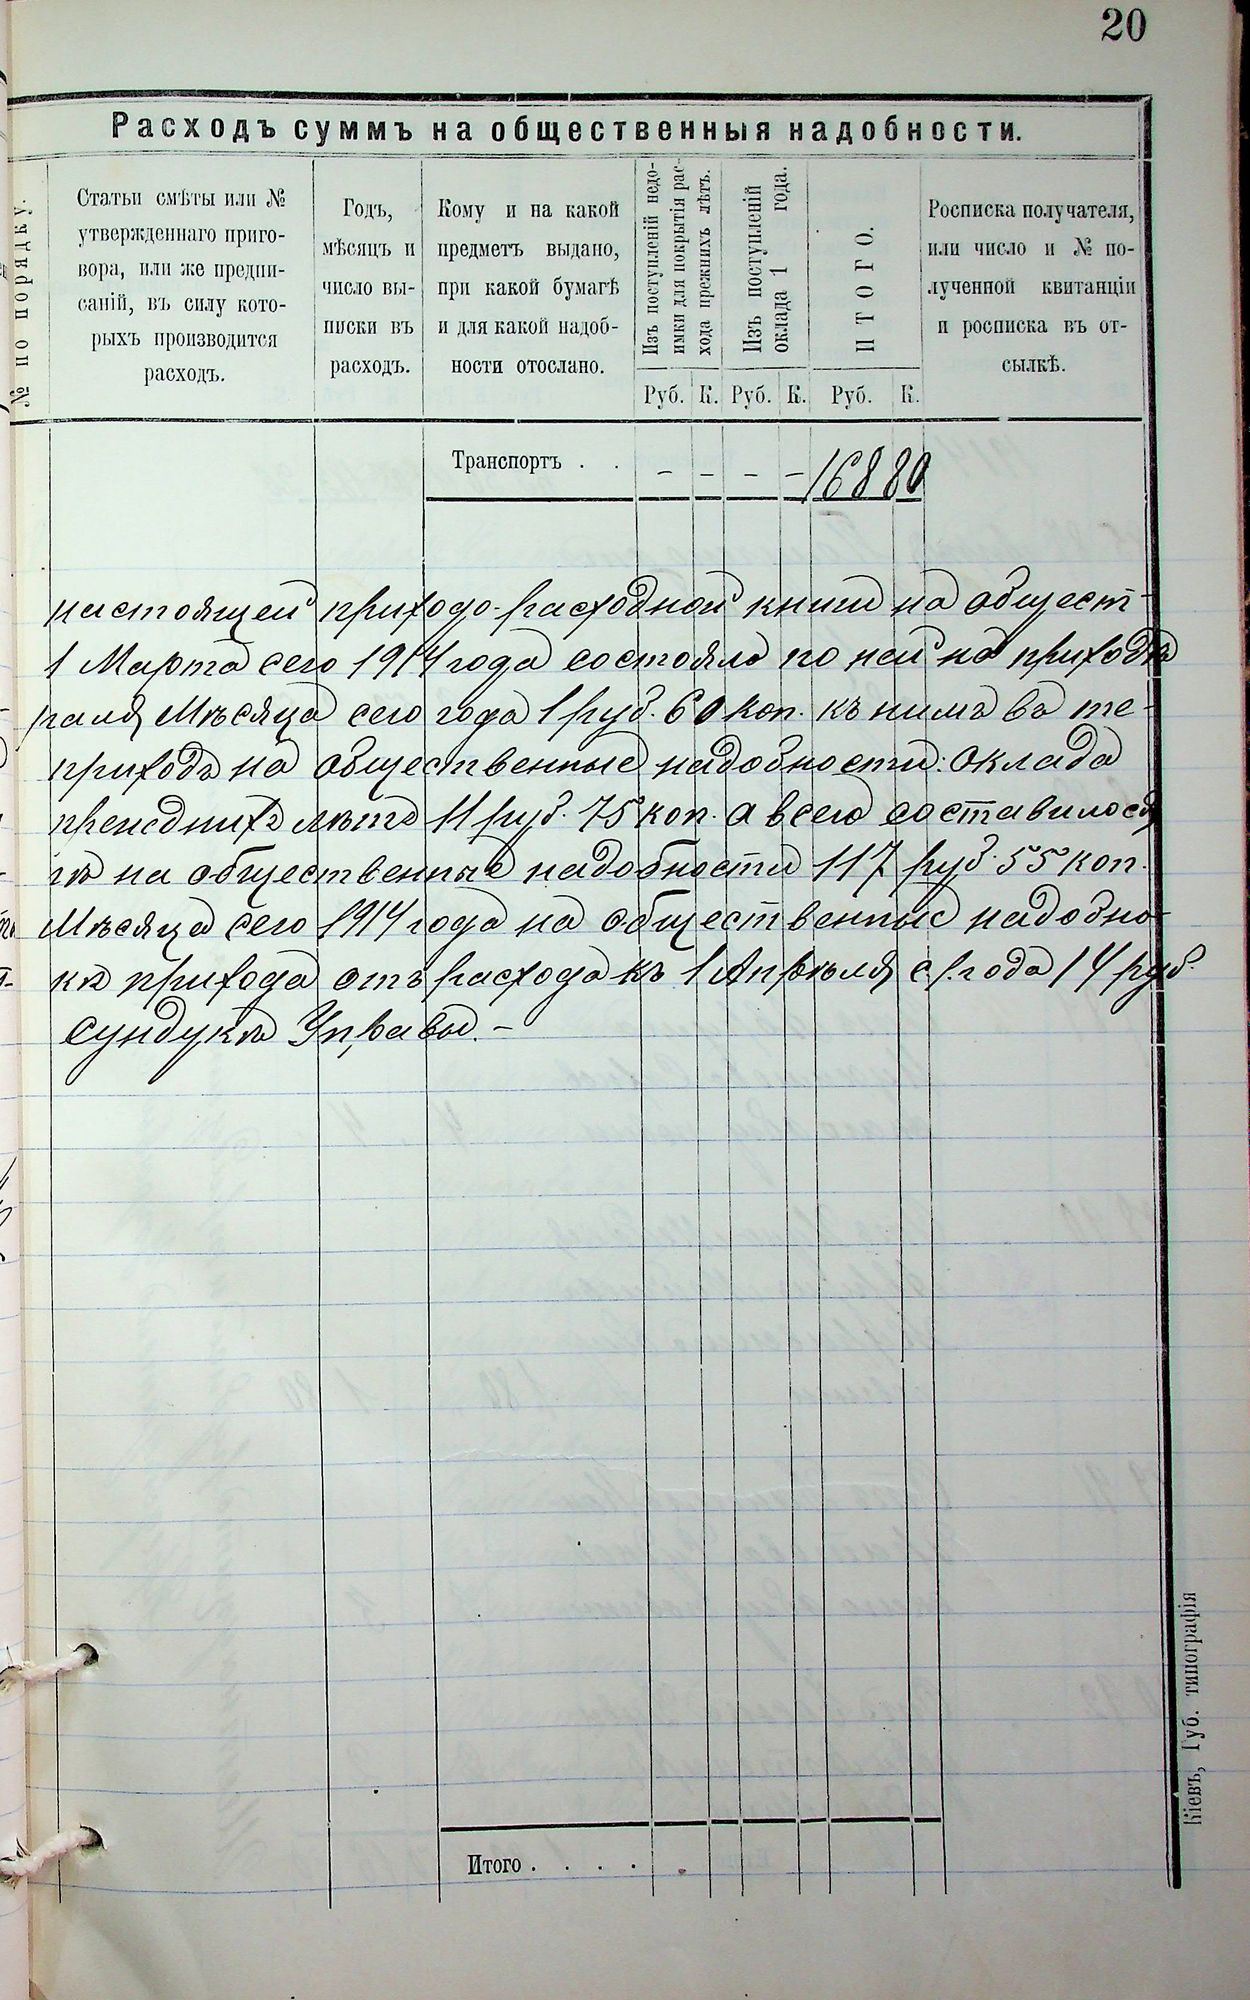 20
Расходъ суммъ на общественныя надобности.
№ по порядку.
Статьи смѣты или №
утвержденнаго приго-
вора, или же предпи-
саній, въ силу кото-
рыхъ производится
расходъ.
Годъ,
мѣсяцъ и
число вы-
писки въ
расходъ.
Кому и на какой
предметъ выдано,
при какой бумагѣ
и для какой надоб-
ности отослано.
Изъ поступленій недо-
имки для покрытія рас-
хода прежнихъ лѣтъ.
Изъ поступленій
оклада 1 года.
ИТОГО.
Росписка получателя,
или число и № по-
лученной квитанціи
и росписка въ от-
сылкѣ.
Руб. К. Руб. К. Руб. К.
Транспортъ . . – – – – 168 80
настоящей приходо-расходной книги на общест-
1 Марта сего 1914 года состояло по ней на приходѣ
раля Мѣсяца сего года 1 руб. 60 коп. къ нимъ въ те-
приходъ на общественные надобности: оклада
прежднихъ лѣтъ 11 руб. 75 коп. а всего составилося
дѣ на общественные надобности 117 руб. 55 коп.
Мѣсяца сего 1914 года на общественные надобно-
къ прихода отъ расхода къ 1 Апрѣля с/года 14 руб.
сундукѣ Управы.–
Итого . . . . .
Кіевъ, Губ. типографія